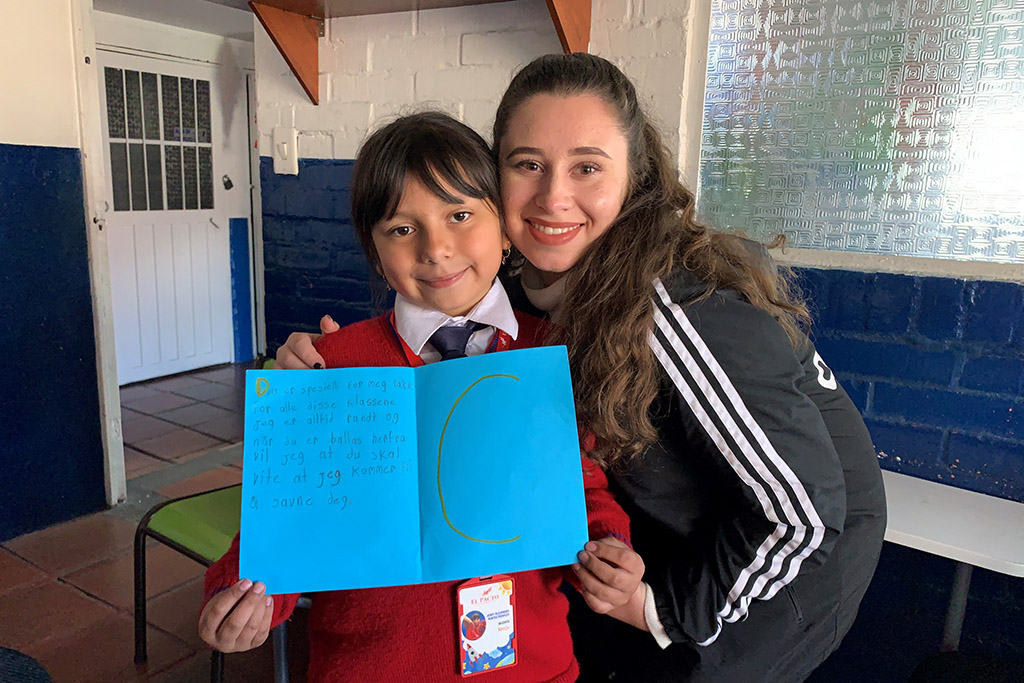 er spesielt for meg takk
for alle disse klassene
jug er alltid rundt og
når du er ballas herfra
vil jeg at du skal
vite at jeg kammer til
å savne deg.
C
EL PACTO